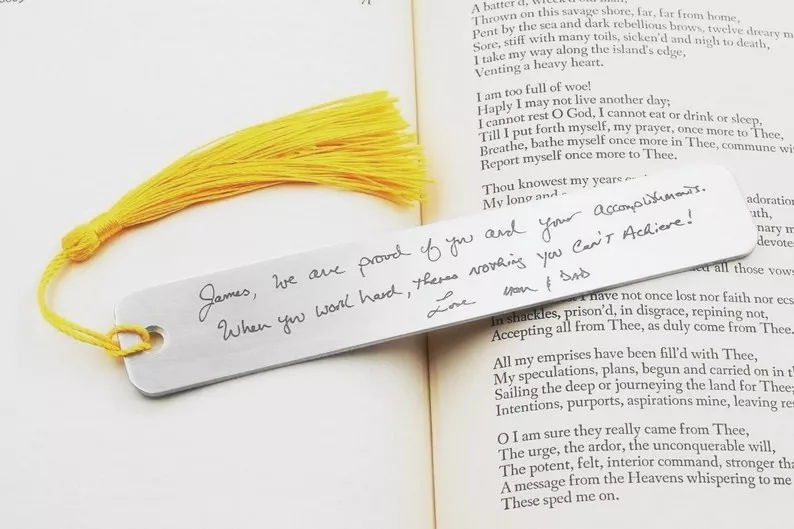 A batter'd, wreck'd old man,
Thrown on this savage shore, far, far from home,
Pent by the sea and dark rebellious brows, twelve dreary m
Sore, stiff with many toils, sicken'd and nigh to death,
I take my way along the island's edge,
Venting a heavy heart.
I am too full of woe!
Haply I may not live another day;
I cannot rest O God, I cannot eat or drink or sleep,
Till I put forth myself, my prayer, once more to Thee,
Breathe, bathe myself once more in Thee, commune wi
Report myself once more to Thee.
Thou knowest my years
My long and
adoration
James, We are proud of you and your accomplishments.
When you work hard, theres nothing you Can't Achieve!
Love Mom & DAD
all those vows
have not once lost nor faith nor ecs
In shackles, prison'd, in disgrace, repining not,
Accepting all from Thee, as duly come from Thee.
All my emprises have been fill'd with Thee,
My speculations, plans, begun and carried on in t
Sailing the deep or journeying the land for Thee;
Intentions, purports, aspirations mine, leaving res
O I am sure they really came from Thee,
The urge, the ardor, the unconquerable will,
The potent, felt, interior command, stronger tha
A message from the Heavens whispering to me
These sped me on.